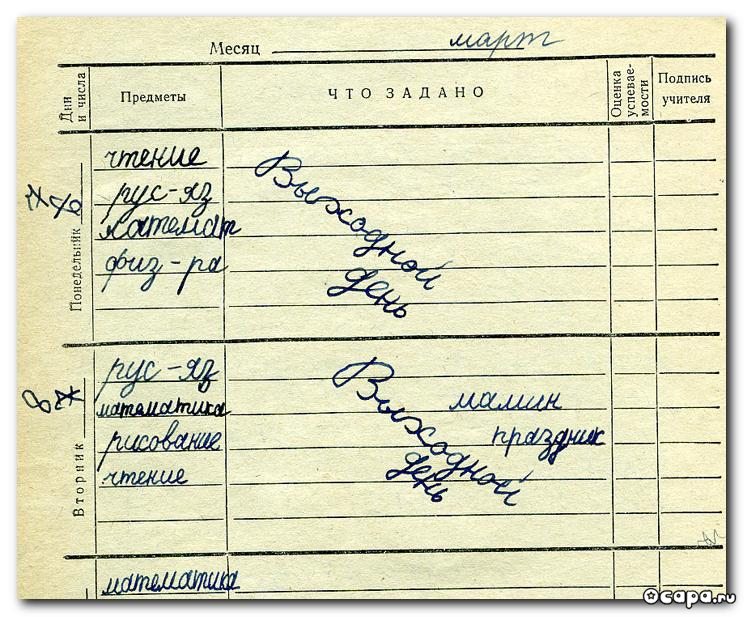 Месяц март
Дни и числа
Предметы
ЧТО ЗАДАНО
Оценка успевае-мости
Подпись учителя
Понедельник
7
чтение
рус-яз
математ
физ-ра
Выходной
день
Вторник
8
рус-яз
математика
рисование
чтение
Выходной
день
мамин
праздник
математика
Ocapa.ru